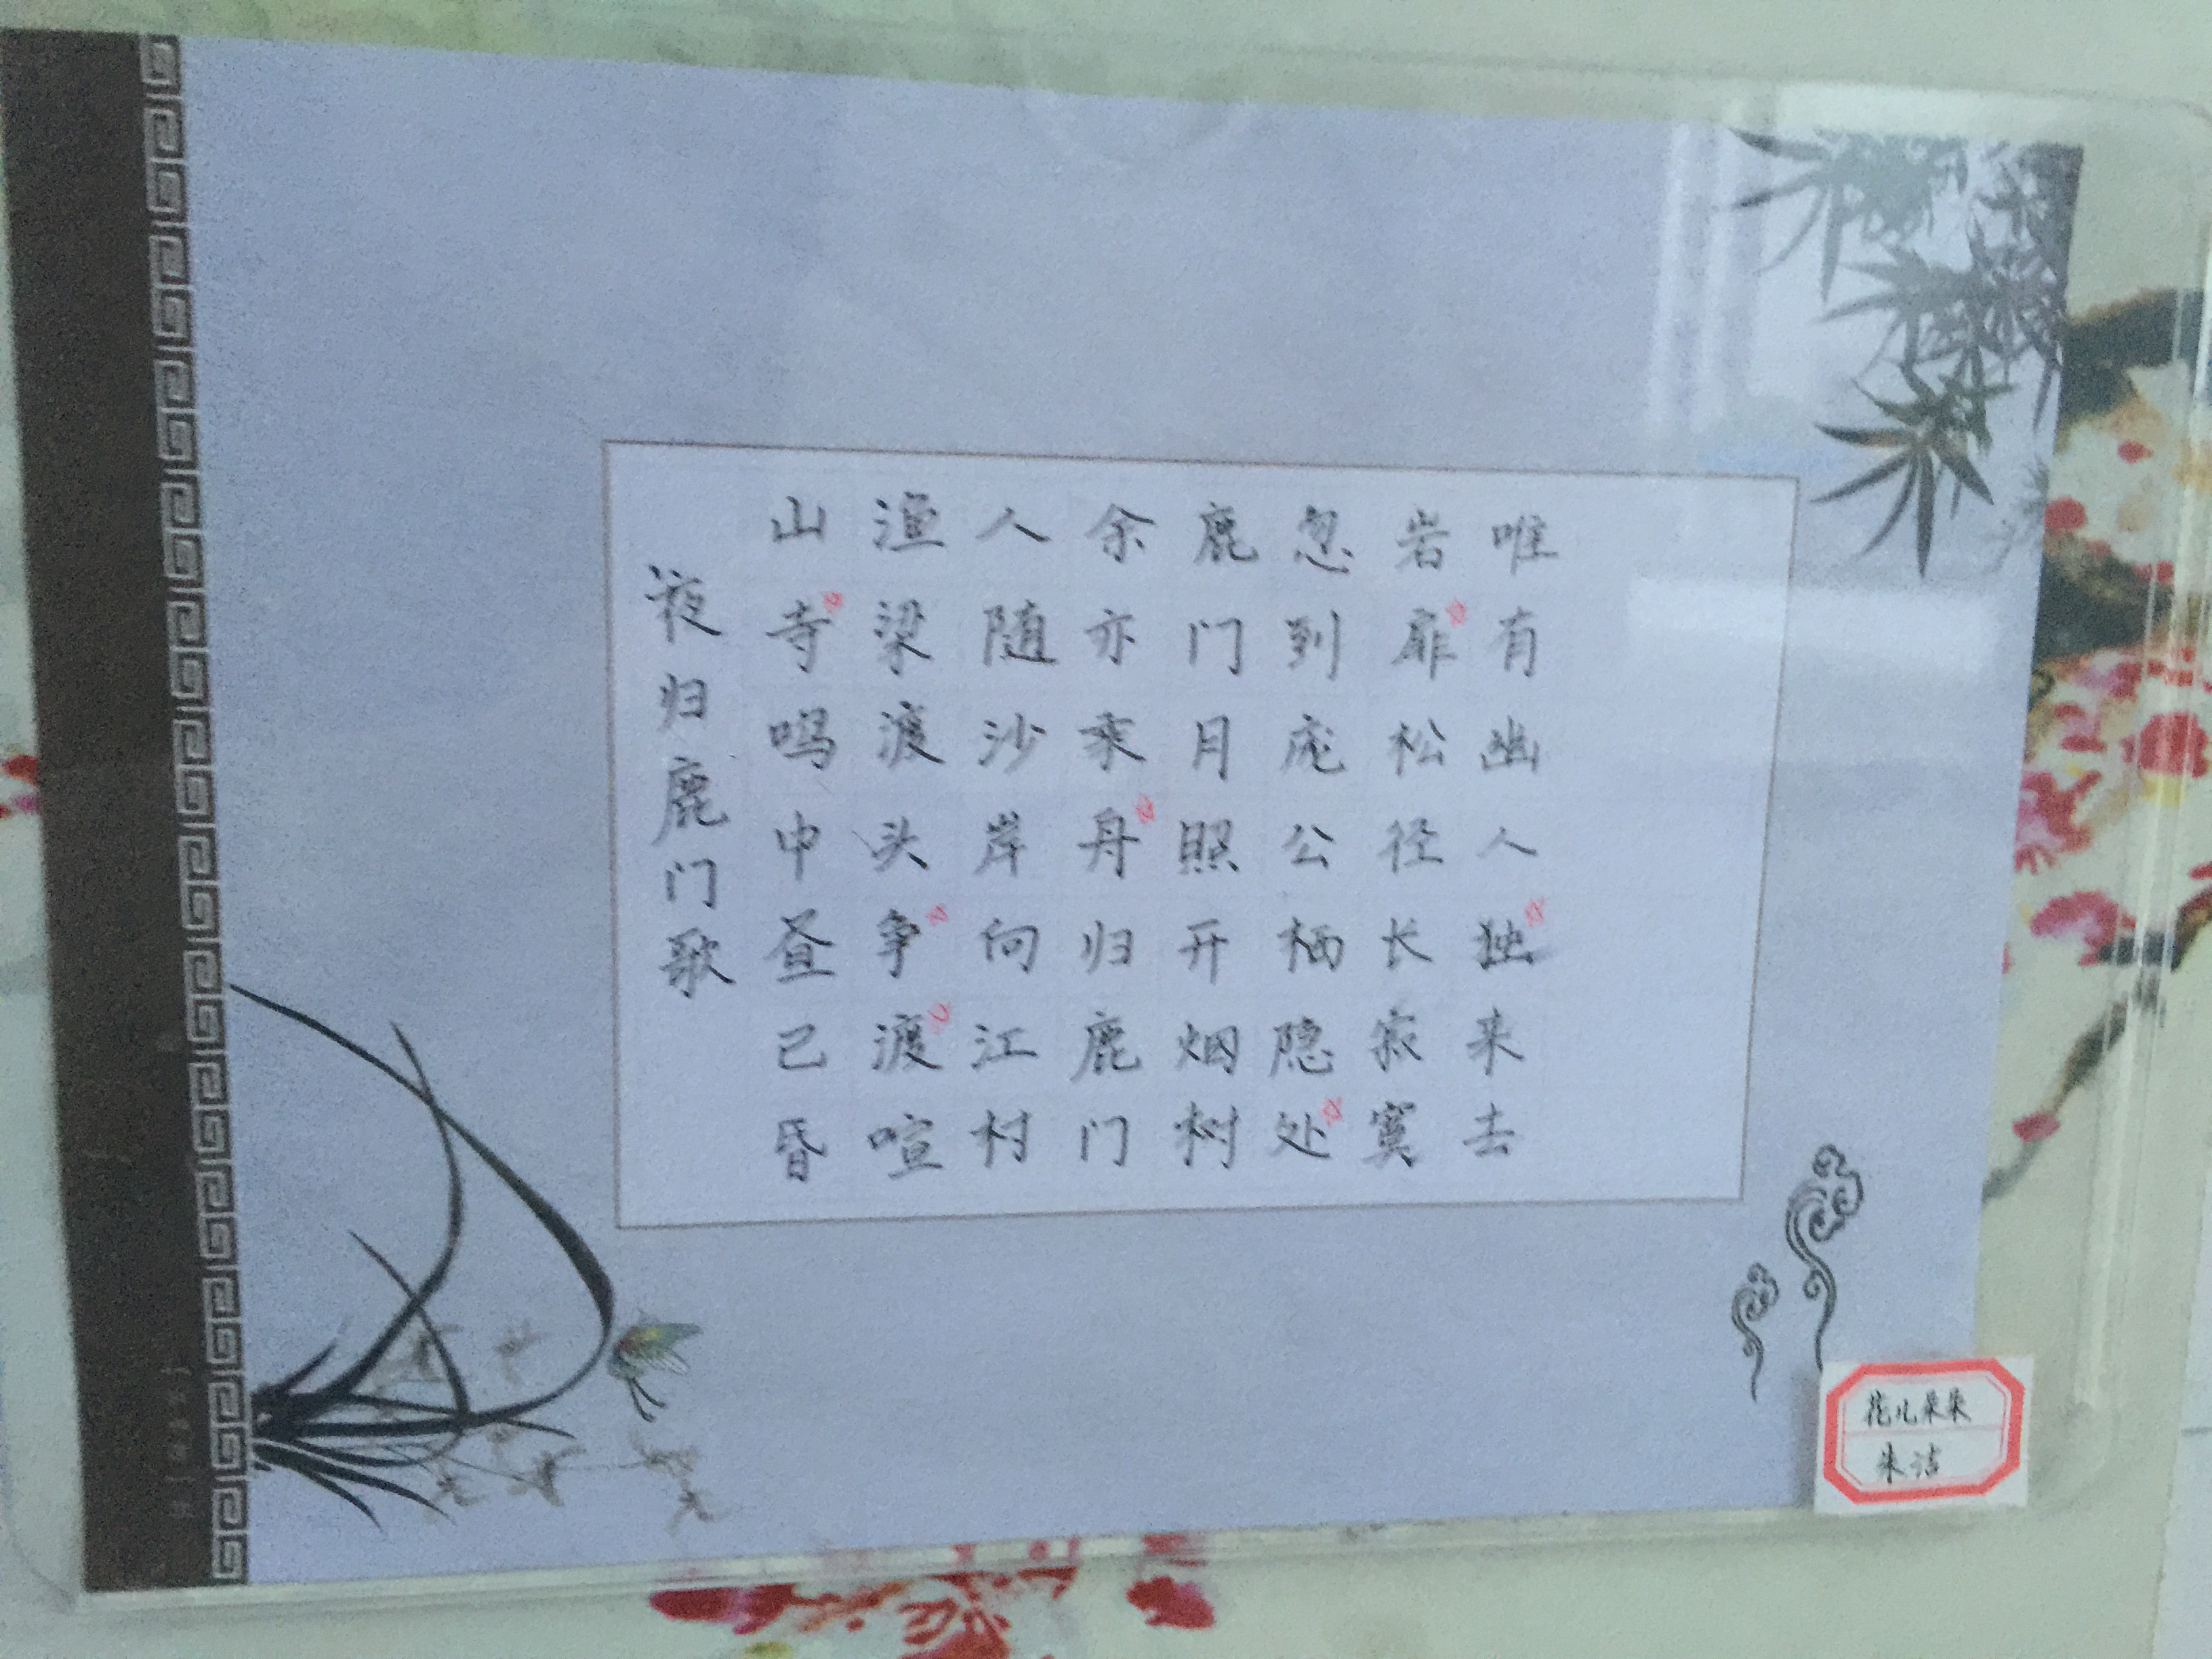 夜归鹿门歌
山寺鸣中昼已昏
渔梁渡头争渡喧
人随沙岸向江村
余亦乘舟归鹿门
鹿门月照开烟树
忽到庞公栖隐处
岩扉松径长寂寞
唯有幽人独来去
花儿朵朵
朱洁